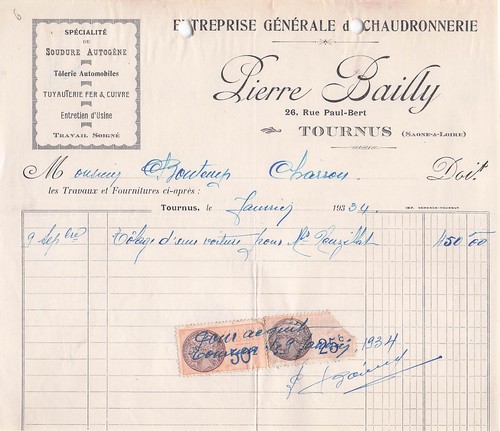 6
SPÉCIALITÉ
DE
SOUDURE AUTOGÈNE
Tôlerie Automobiles
TUYAUTERIE FER & CUIVRE
Entretien d'Usine
TRAVAIL SOIGNÉ
ENTREPRISE GÉNÉRALE de CHAUDRONNERIE
Pierre Bailly
26, Rue Paul-Bert
TOURNUS (SAONE-&-LOIRE)
Monsieur Bontemp Doit
les Travaux et Fournitures ci-après :
Tournus, le Janvier 1934
IMP. TOURNUS
9 Sepbre Tôlage d'une voiture pour Mr 150 00
Pour acquit
Tournus le 9 1934
50c 25c